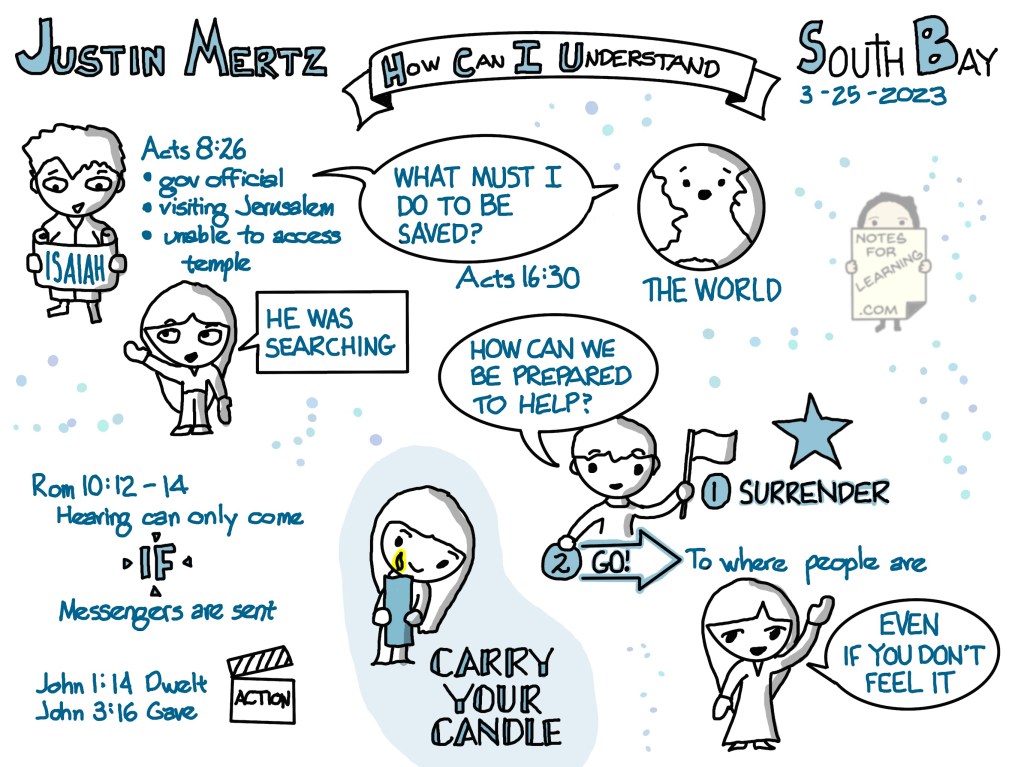 JUSTIN MERTZ
HOW CAN I UNDERSTAND
SOUTH BAY
3-25-2023
Acts 8:26
• gov official
• visiting Jerusalem
• unable to access
temple
ISAIAH
WHAT MUST I
DO TO BE
SAVED?
Acts 16:30
THE WORLD
NOTES
FOR
LEARNING
.COM
HE WAS
SEARCHING
HOW CAN WE
BE PREPARED
TO HELP?
1 SURRENDER
2 GO! To where people are
EVEN
IF YOU DON'T
FEEL IT
Rom 10:12-14
Hearing can only come
IF
Messengers are sent
John 1:14 Dwelt
John 3:16 Gave
ACTION
CARRY
YOUR
CANDLE